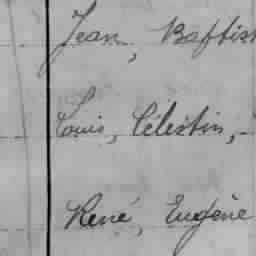 Jean, Baptist
Louis, Célestin,
René, Eugène